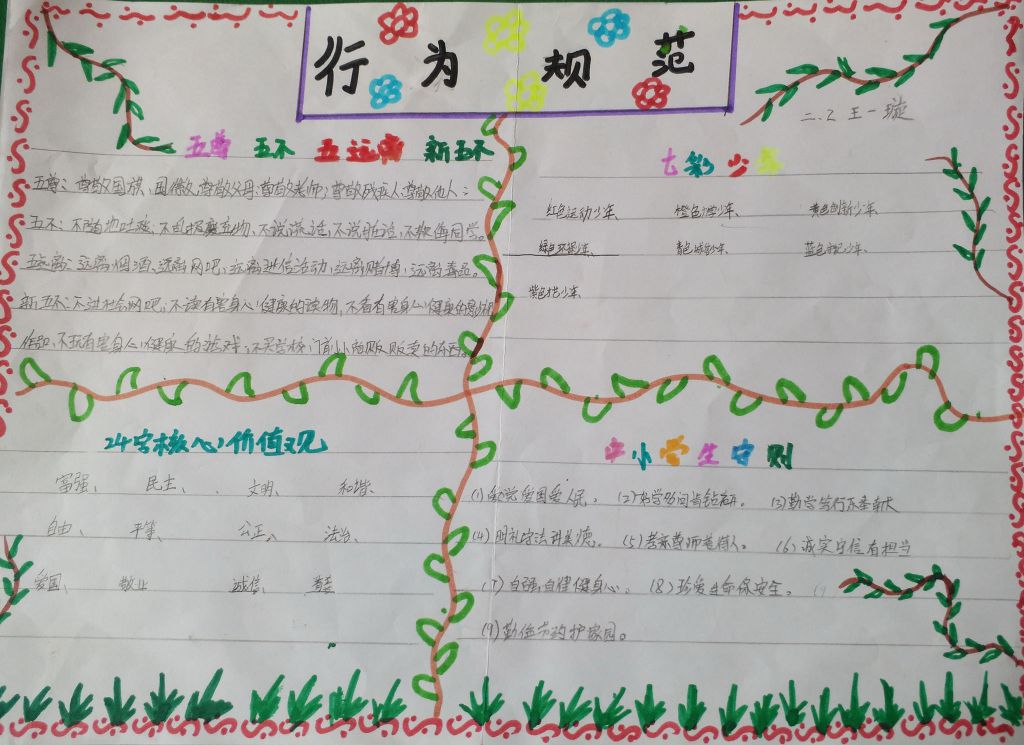 行为规范
二.2 王一璇
五尊 五不 五远离 新五不
五尊：尊敬国旗、国徽，尊敬父母，尊敬老师，尊敬残疾人，尊敬他人；
五不：不随地吐痰、不乱扔废弃物，不说谎话，不说脏话，不欺侮同学。
五远离：远离烟酒、远离网吧、远离迷信活动，远离赌博，远离毒品。
新五不：不进社会网吧，不读有害身心健康的读物，不看有害身心健康的影视
作品，不玩有害身心健康的游戏，不买学校门前小商贩贩卖的东西。
七彩少年
红色运动少年、 橙色 少年、 黄色创新少年、
绿色环保少年、 青色 少年、 蓝色 少年、
紫色 少年、
24字核心价值观
富强、 民主、 文明、 和谐、
自由、 平等、 公正、 法治、
爱国、 敬业 诚信、 友善
中小学生守则
(1)爱党爱国爱人民。 (2)好学多问肯钻研。 (3)勤学笃行乐奉献
(4)明礼守法讲美德。 (5)孝亲尊师善待人。 (6)诚实守信有担当
(7)自强自律健身心。 (8)珍爱生命保安全。
(9)勤俭节约护家园。